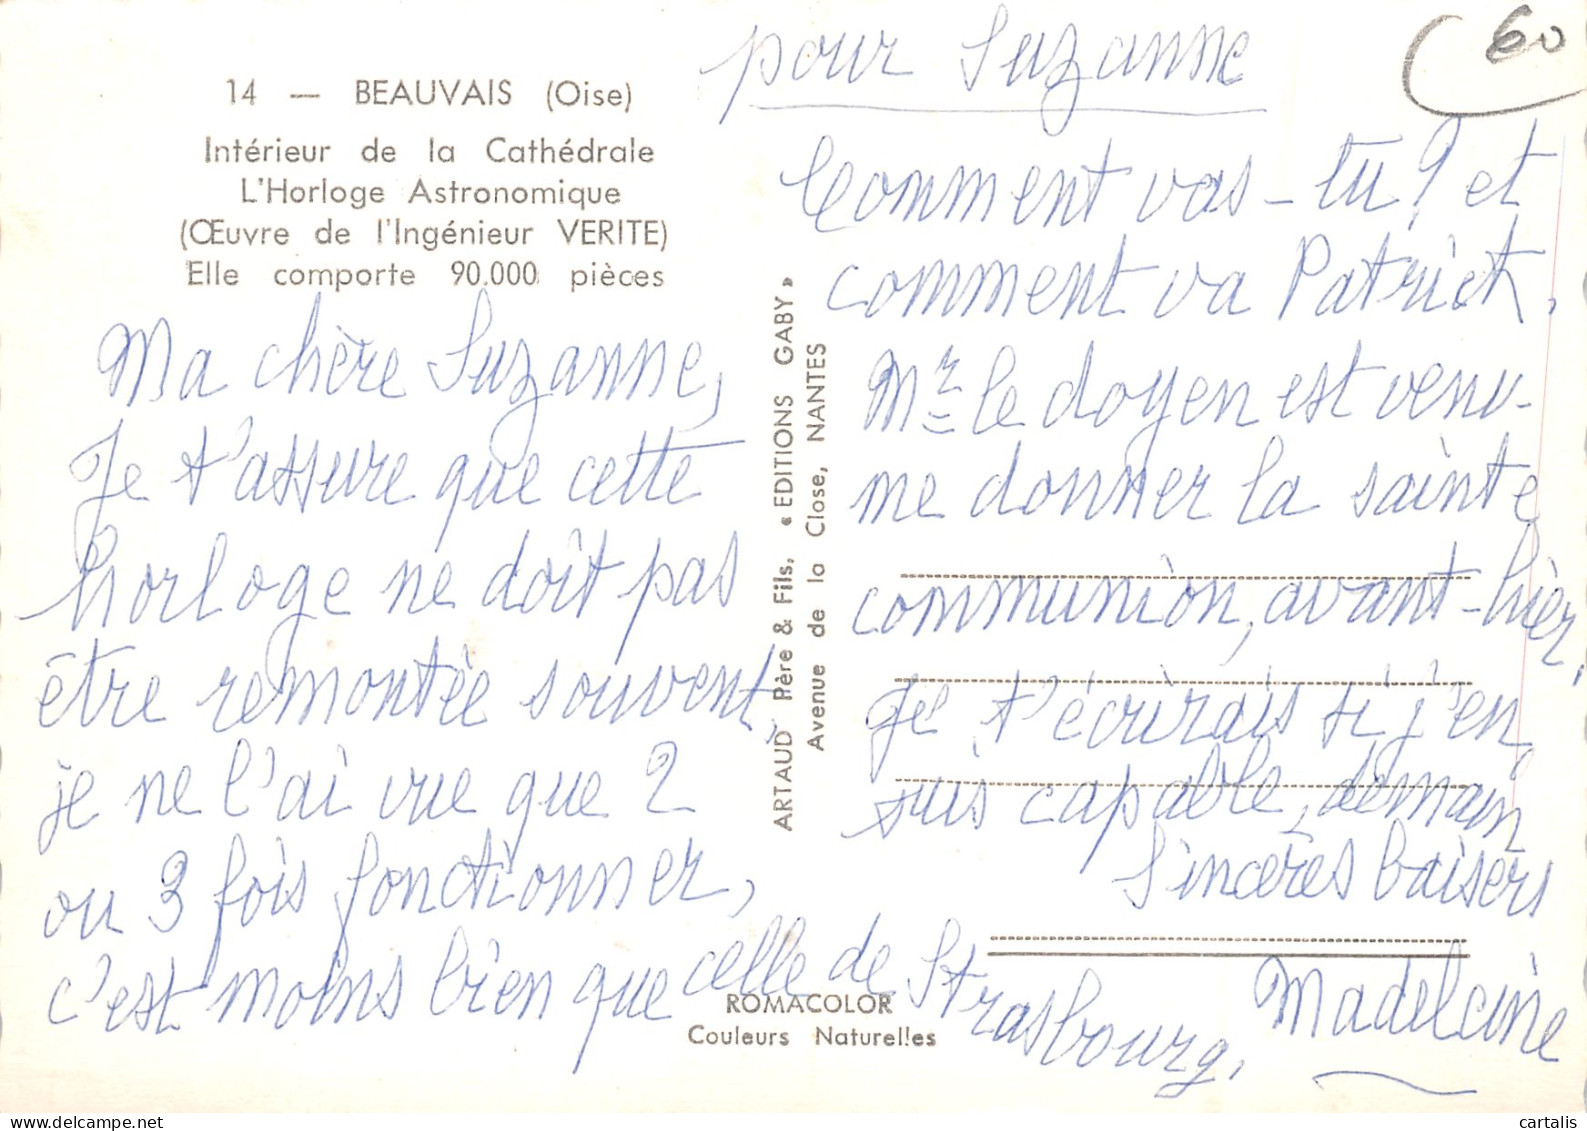 14 — BEAUVAIS (Oise)
Intérieur de la Cathédrale
L'Horloge Astronomique
(Œuvre de l'Ingénieur VERITE)
Elle comporte 90.000 pièces
Ma chère Suzanne,
Je t'assure que cette
horloge ne doit pas
être remontée souvent,
je ne l'ai vue que 2
ou 3 fois fonctionner,
c'est moins bien que celle de Strasbourg,
ARTAUD Père & Fils, « EDITIONS GABY »
Avenue de la Close, NANTES
ROMACOLOR
Couleurs Naturelles
60
pour Suzanne
Comment vas-tu? et
comment va Patrick,
Mr le doyen est venu
me donner la sainte
communion, avant-hier,
Je t'écrirais si j'en
suis capable, demain
Sincères baisers
Madeleine
cartalis